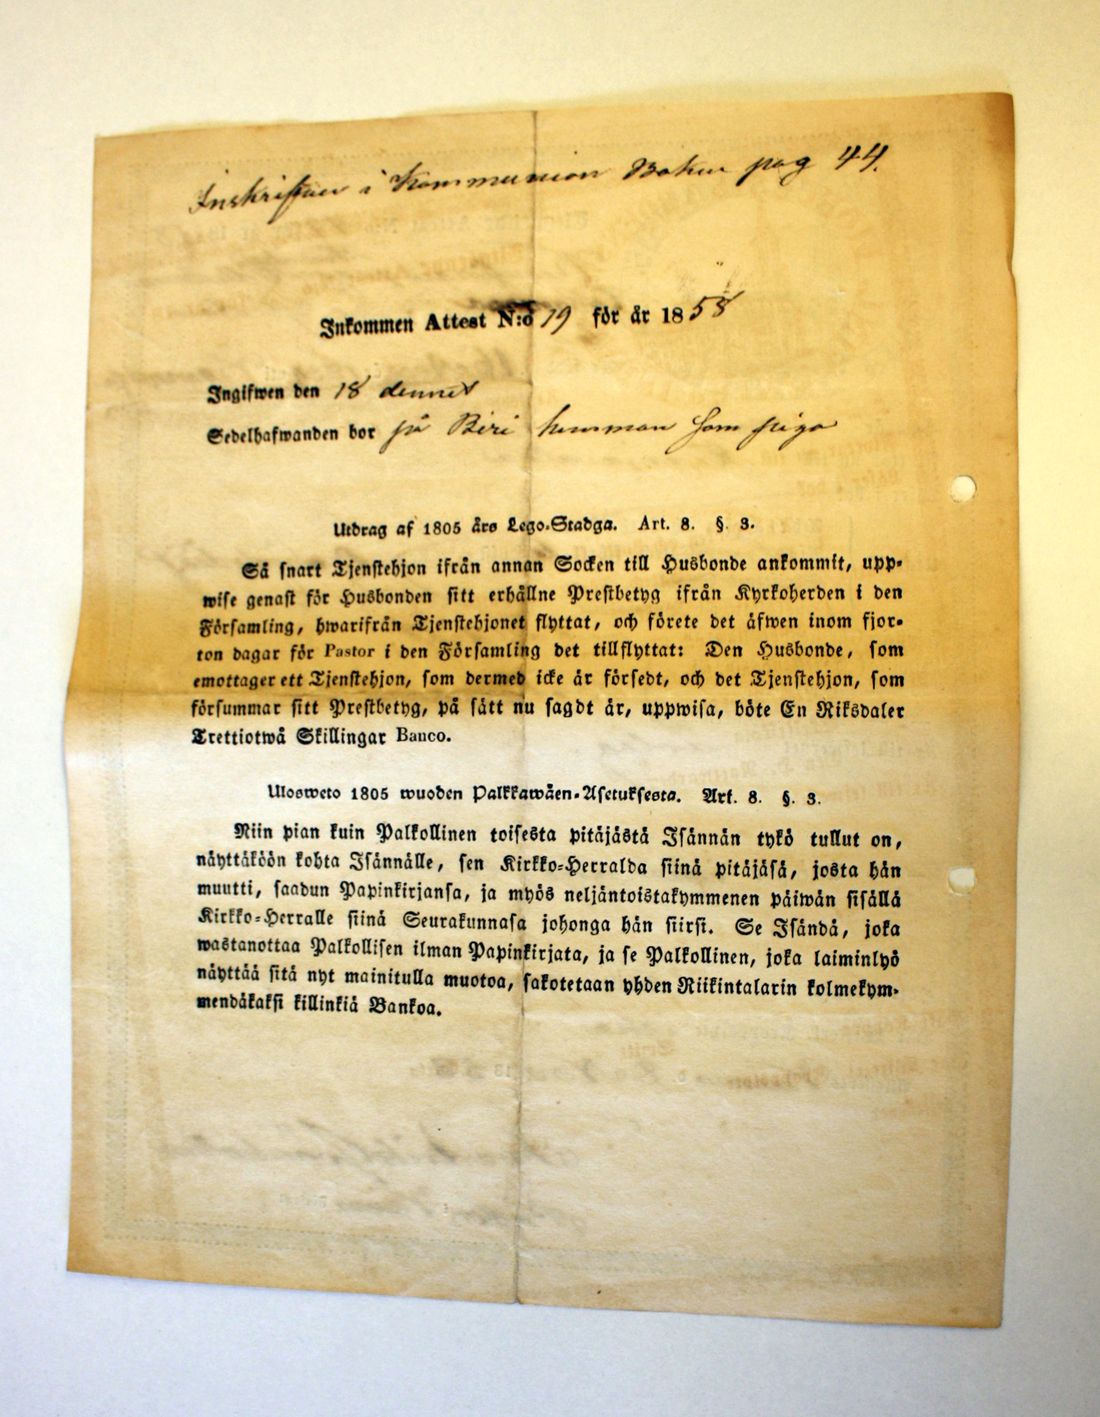 Inskrifven i Kommunion Boken pag 44.
Inkommen Attest N:o 19 för år 1858
Ingifwen den 18 dennes
Sedelhafwanden bor på Biri hemman som piga
Utdrag af 1805 års Lego-Stadga. Art. 8. §. 3.
Så snart Tjenstehjon ifrån annan Socken till Husbonde ankommit, upp-
wise genast för Husbonden sitt erhållne Prestbetyg ifrån Kyrkoherden i den
Församling, hwarifrån Tjenstehjonet flyttat, och förete det äfwen inom fjor-
ton dagar för Pastor i den Församling det tillflyttat: Den Husbonde, som
emottager ett Tjenstehjon, som dermed icke är försedt, och det Tjenstehjon, som
försummar sitt Prestbetyg, på sätt nu sagdt är, uppwisa, böte En Riksdaler
Trettiotwå Skillingar Banco.
Ulosweto 1805 wuoden Palkkawäen-Asetuksesta. Art. 8. §. 3.
Niin pian kuin Palkollinen toisesta pitäjästä Isännän tykö tullut on,
näyttäköön kohta Isännälle, sen Kirkko-Herralda siinä pitäjäsä, josta hän
muutti, saadun Papinkirjansa, ja myös neljäntoistakymmenen päiwän sisällä
Kirkko-Herralle siinä Seurakunnasa johonga hän siirsi. Se Isändä, joka
wastanottaa Palkollisen ilman Papinkirjata, ja se Palkollinen, joka laiminlyö
näyttää sitä nyt mainitulla muotoa, sakotetaan yhden Riikintalarin kolmekym-
mendäkaksi killinkiä Bankoa.